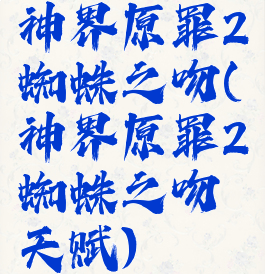 神界原罪2
蜘蛛之吻(
神界原罪2
蜘蛛之吻
天赋)